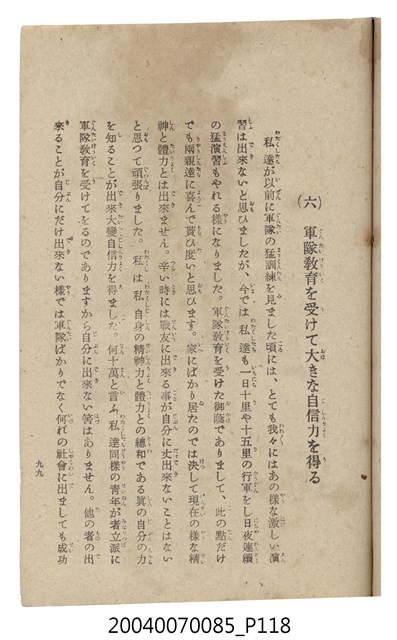 (六) 軍隊敎育を受けて大きな自信力を得る
私達が以前に軍隊の猛訓練を見ました頃には、とても我々にはあの樣な激しい演
習は出來ないと思ひましたが、今では私達も一日十里や十五里の行軍をし日夜連續
の猛演習もやれる樣になりました。軍隊敎育を受けた御蔭でありまして、此の點だけ
でも兩親達に喜んで貰ひ度いと思ひます。家にばかり居たのでは決して現在の樣な精
神と體力とは出來ません。辛い時には戰友に出來る事が自分に丈出來ないことはない
と思つて頑張りました。私は、私自身の精神力と體力との總和である眞の自分の力
を知ることが出來大變自信力を得ました。何十萬と言ふ私達同樣の靑年が皆立派に
軍隊敎育を受けてゐるのでありますから自分に出來ない筈はありません。他の者の出
來ることが自分にだけ出來ない樣では軍隊ばかりでなく何れの社會に出ましても成功
九九
20040070085_P118